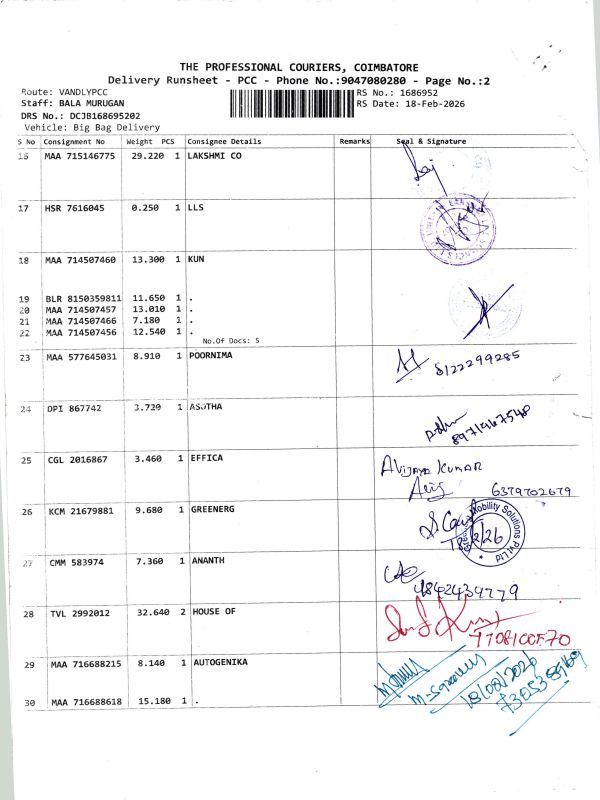 THE PROFESSIONAL COURIERS, COIMBATORE
Delivery Runsheet - PCC - Phone No.:9047080280 - Page No.:2
Route: VANDLYPCC
RS No.: 1686952
Staff: BALA MURUGAN
RS Date: 18-Feb-2026
DRS No.: DCJB168695202
Vehicle: Big Bag Delivery
S No Consignment No Weight PCS Consignee Details Remarks Seal & Signature
16 MAA 715146775 29.220 1 LAKSHMI CO
17 HSR 7616045 0.250 1 LLS
18 MAA 714507460 13.300 1 KUN
19 BLR 8150359811 11.650 1 .
20 MAA 714507457 13.010 1 .
21 MAA 714507466 7.180 1 .
22 MAA 714507456 12.540 1 .
No.Of Docs: 5
23 MAA 577645031 8.910 1 POORNIMA
8122299285
24 DPI 867742 3.720 1 ASOTHA
8971967548
25 CGL 2016867 3.460 1 EFFICA
AVIJAYA KUMAR
6379702679
26 KCM 21679881 9.680 1 GREENERG
Mobility Solutions Pvt Ltd
18/2/26
27 CMM 583974 7.360 1 ANANTH
28 TVL 2992012 32.640 2 HOUSE OF
29 MAA 716688215 8.140 1 AUTOGENIKA
18/02/2026
30 MAA 716688618 15.180 1 .